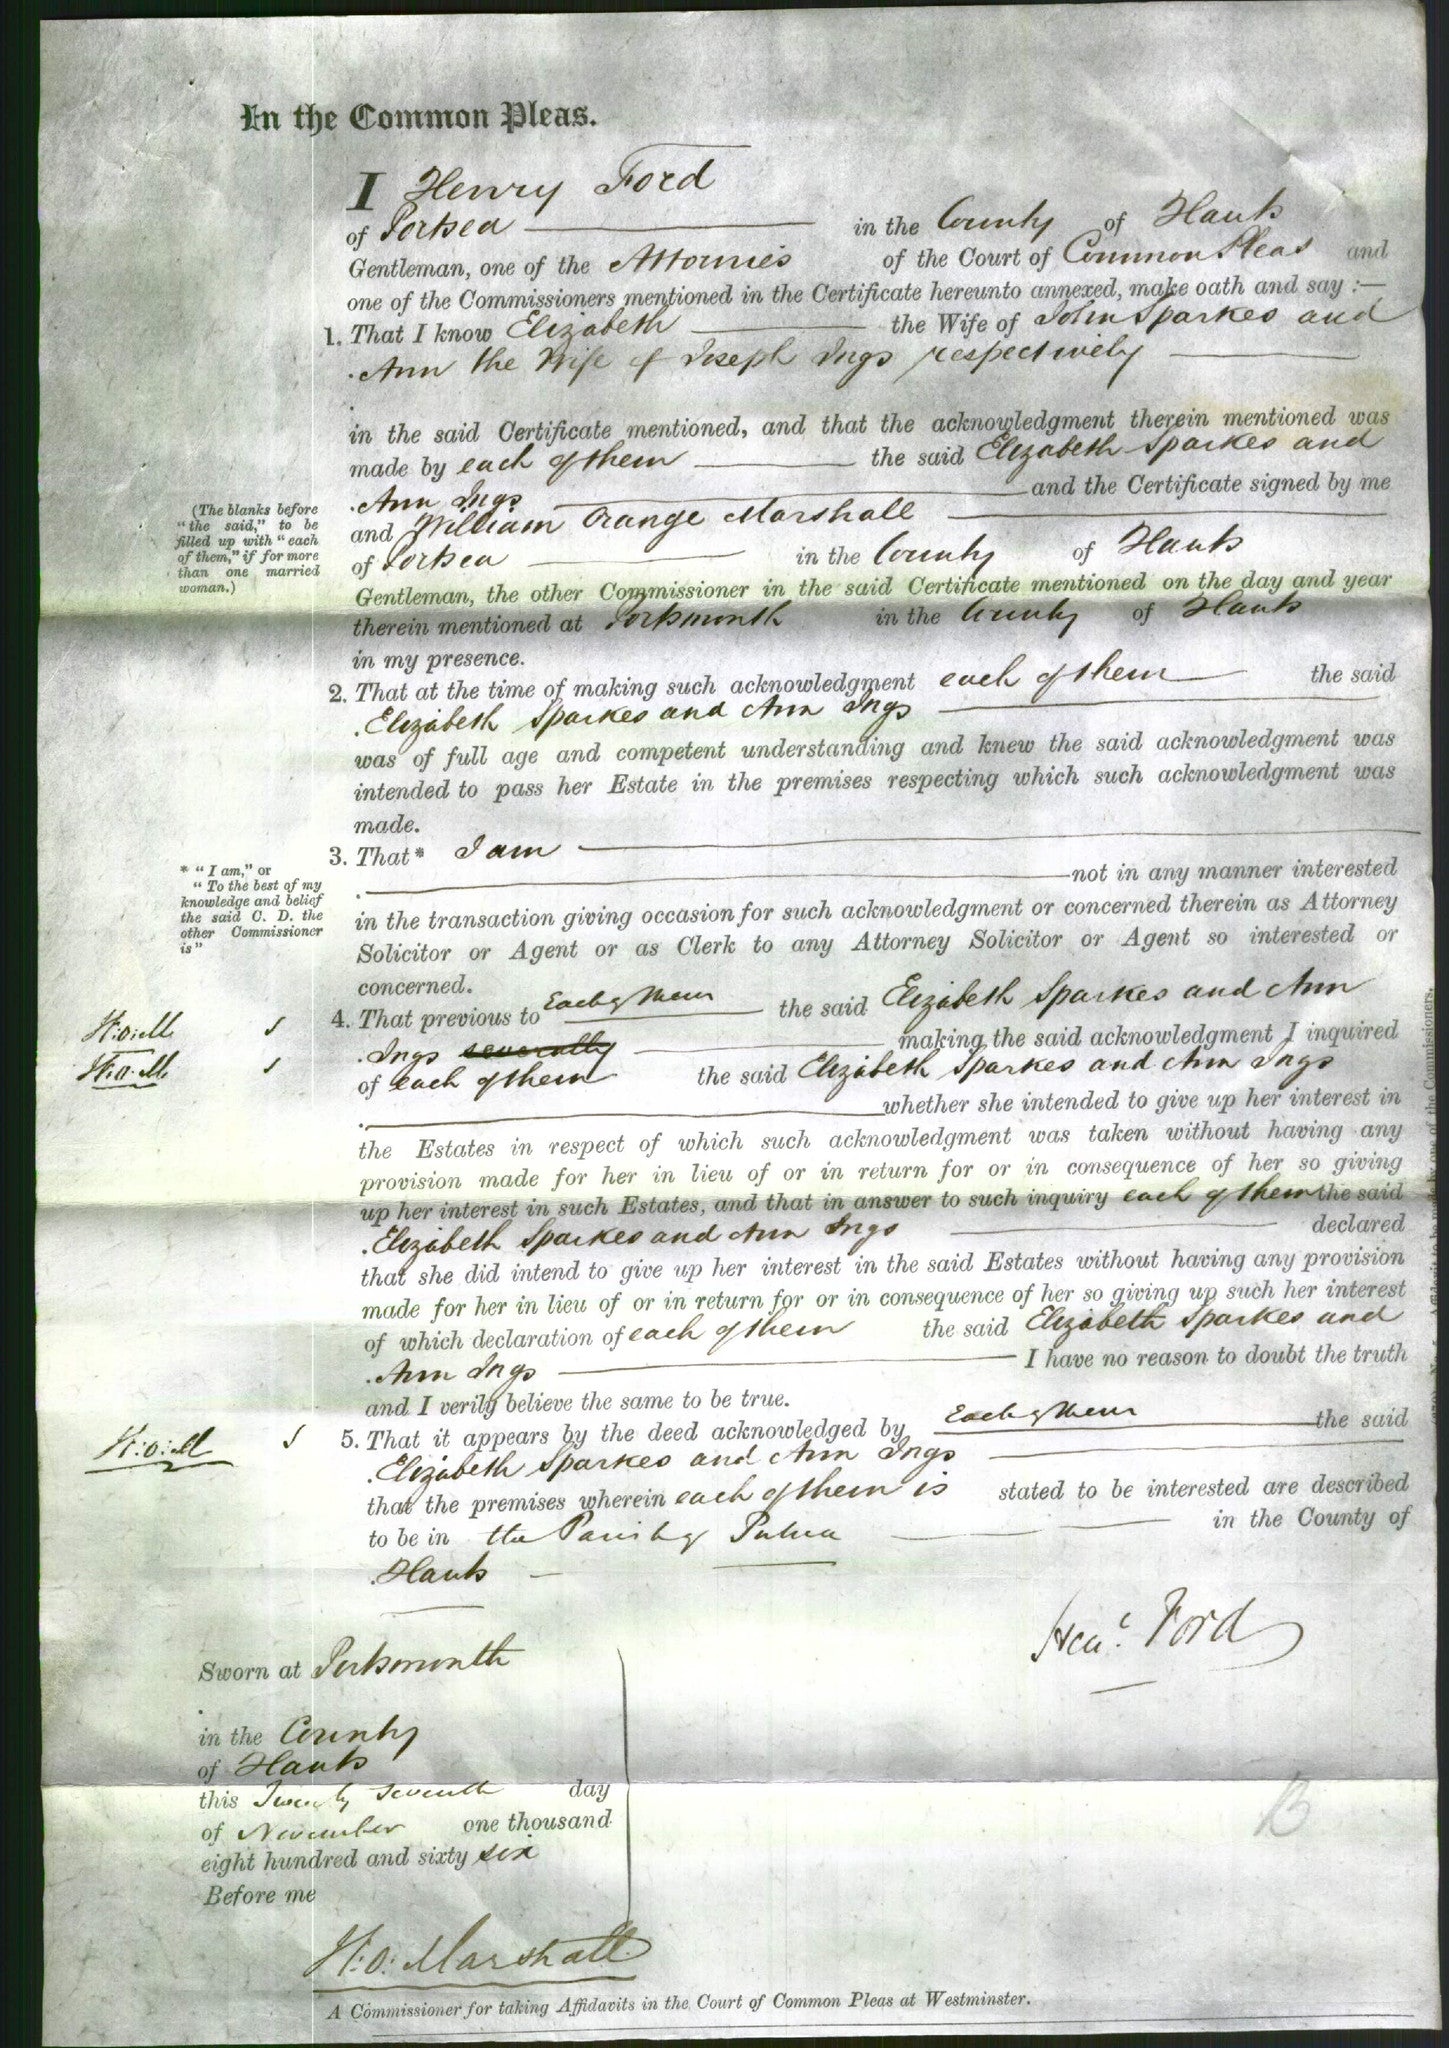 In the Common Pleas.
I Henry Ford
of Portsea in the County of Hants
Gentleman, one of the Attornies of the Court of Common Pleas and
one of the Commissioners mentioned in the Certificate hereunto annexed, make oath and say :—
1. That I know Elizabeth the Wife of John Sparkes and
Ann the Wife of Joseph Ings respectively
in the said Certificate mentioned, and that the acknowledgment therein mentioned was
made by each of them the said Elizabeth Sparkes and
Ann Ings and the Certificate signed by me
(The blanks before
"the said," to be
filled up with "each
of them," if for more
than one married
woman.)
and William Orange Marshall
of Portsea in the County of Hants
Gentleman, the other Commissioner in the said Certificate mentioned on the day and year
therein mentioned at Portsmouth in the County of Hants
in my presence.
2. That at the time of making such acknowledgment each of them the said
Elizabeth Sparkes and Ann Ings
was of full age and competent understanding and knew the said acknowledgment was
intended to pass her Estate in the premises respecting which such acknowledgment was
made.
3. That* I am
* "I am," or
"To the best of my
knowledge and belief
the said C. D. the
other Commissioner
is"
not in any manner interested
in the transaction giving occasion for such acknowledgment or concerned therein as Attorney
Solicitor or Agent or as Clerk to any Attorney Solicitor or Agent so interested or
concerned.
W:O:M
4. That previous to Each of them the said Elizabeth Sparkes and Ann
W.O.M.
Ings severally making the said acknowledgment I inquired
of each of them the said Elizabeth Sparkes and Ann Ings
whether she intended to give up her interest in
the Estates in respect of which such acknowledgment was taken without having any
provision made for her in lieu of or in return for or in consequence of her so giving
up her interest in such Estates, and that in answer to such inquiry each of them the said
Elizabeth Sparkes and Ann Ings declared
that she did intend to give up her interest in the said Estates without having any provision
made for her in lieu of or in return for or in consequence of her so giving up such her interest
of which declaration of each of them the said Elizabeth Sparkes and
Ann Ings I have no reason to doubt the truth
and I verily believe the same to be true.
W:O:M
5. That it appears by the deed acknowledged by Each of them the said
Elizabeth Sparkes and Ann Ings
that the premises wherein each of them is stated to be interested are described
to be in the Parish of Portsea in the County of
Hants
Heny. Ford
Sworn at Portsmouth
in the County
of Hants
this Twenty seventh day
of November one thousand
eight hundred and sixty six
Before me
W:O: Marshall
A Commissioner for taking Affidavits in the Court of Common Pleas at Westminster.
to be made by one of the Commissioners.